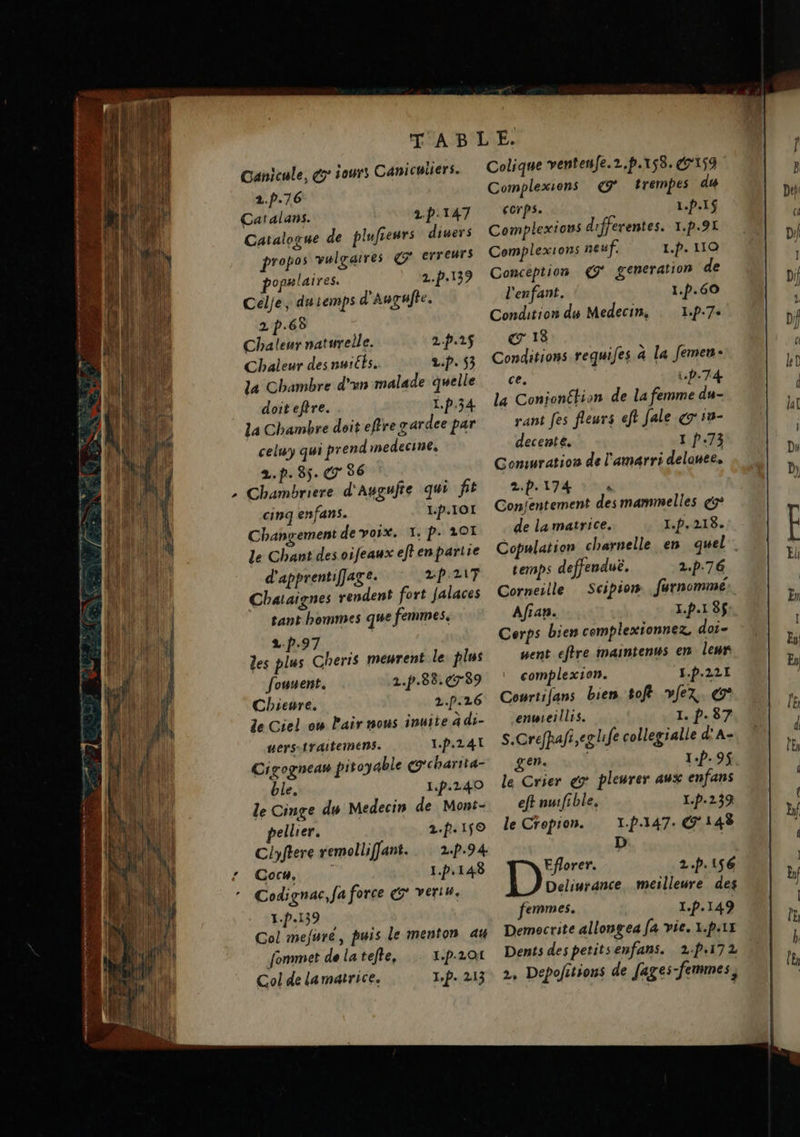 TABLE.
Canicule, & iours Caniculiers.
2.p.76
Catalans. 2.p.147
Catalogue de plusieurs diuers
propos vulgaires & erreurs
populaires. 2.p.139
Celse, du temps d'Auguste.
2 p.68
Chaleur naturelle. 2.p.25
Chaleur des nuicts. 2.p. 53
la Chambre d'vn malade quelle
doit estre. 1.p.34
la Chambre doit estre gardee par
celuy qui prend medecine,
2.p. 85. & 86
Chambriere d'Auguste qui fit
cinq enfans. 1.p.101
Changement de voix. 1. p. 201
le Chant des oiseaux est en partie
d'apprentissage. 2.p.217
Chataignes rendent fort salaces
tant hommes que femmes,
2.p.97
les plus Cheris meurent le plus
souuent. 2.p.88.&89
Chieure. 2.p.26
le Ciel ou l'air nous inuite à di-
uers traitemens. 1.p.241
Cigogneau pitoyable & charita-
ble. 1.p.240
le Cinge du Medecin de Mont-
pellier. 2.p.150
Clystere remollissant. 2.p.94
Cocu, 1.p.148
Codignac, sa force & vertu.
1.p.139
Col mesuré, puis le menton au
sommet de la teste, 1.p.201
Col de la matrice. 1.p. 213
Colique venteuse. 2.p.158. &159
Complexions & trempes du
corps. 1.p.15
Complexions differentes. 1.p.91
Complexions neuf. 1.p. 110
Conception & generation de
l'enfant. 1.p.60
Condition du Medecin, 1.p.7.
& 18
Conditions requises à la semen-
ce. 1.p.74
la Conionction de la femme du-
rant ses fleurs est sale & in-
decente. 1 p.73
Coniuration de l'amarri delouee,
2.p.174
Consentement des mammelles &
de la matrice. 1.p.218.
Copulation charnelle en quel
temps deffenduë. 2.p.76
Corneille Scipion surnommé
Asian. 1.p.185
Corps bien complexionnez, doi-
uent estre maintenus en leur
complexion. 1.p.221
Courtisans bien tost vsez, &
enuieillis. 1. p. 87
S.Crespasi, eglise collegialle d'A-
gen. 1.p. 95
le Crier & pleurer aux enfans
est nuisible, 1.p.239
le Cropion. 1.p.147. & 148
D
DEflorer. 2.p.156
Deliurance meilleure des
femmes. 1.p.149
Democrite allongea sa vie. 1.p.11
Dents des petits enfans. 2.p.172
2, Depositions de sages-femmes,